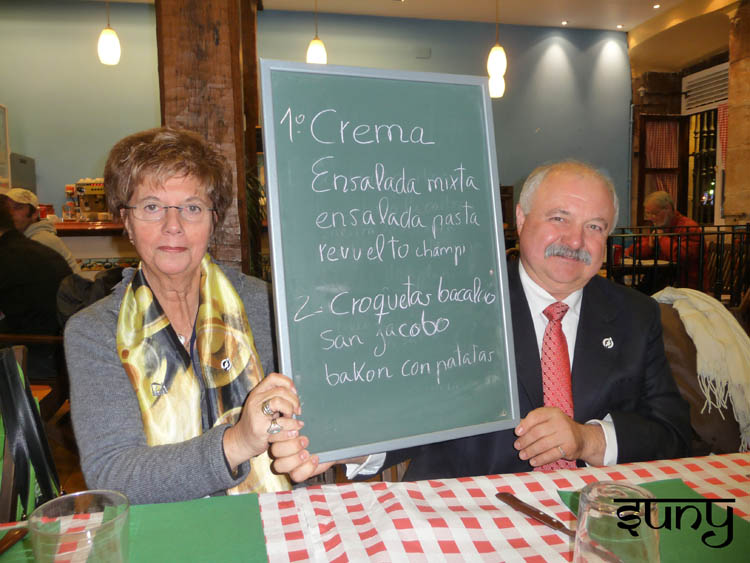 1º Crema
Ensalada mixta
ensalada pasta
revuelto champi
2- Croquetas bacalao
san jacobo
bakon con patatas
suny